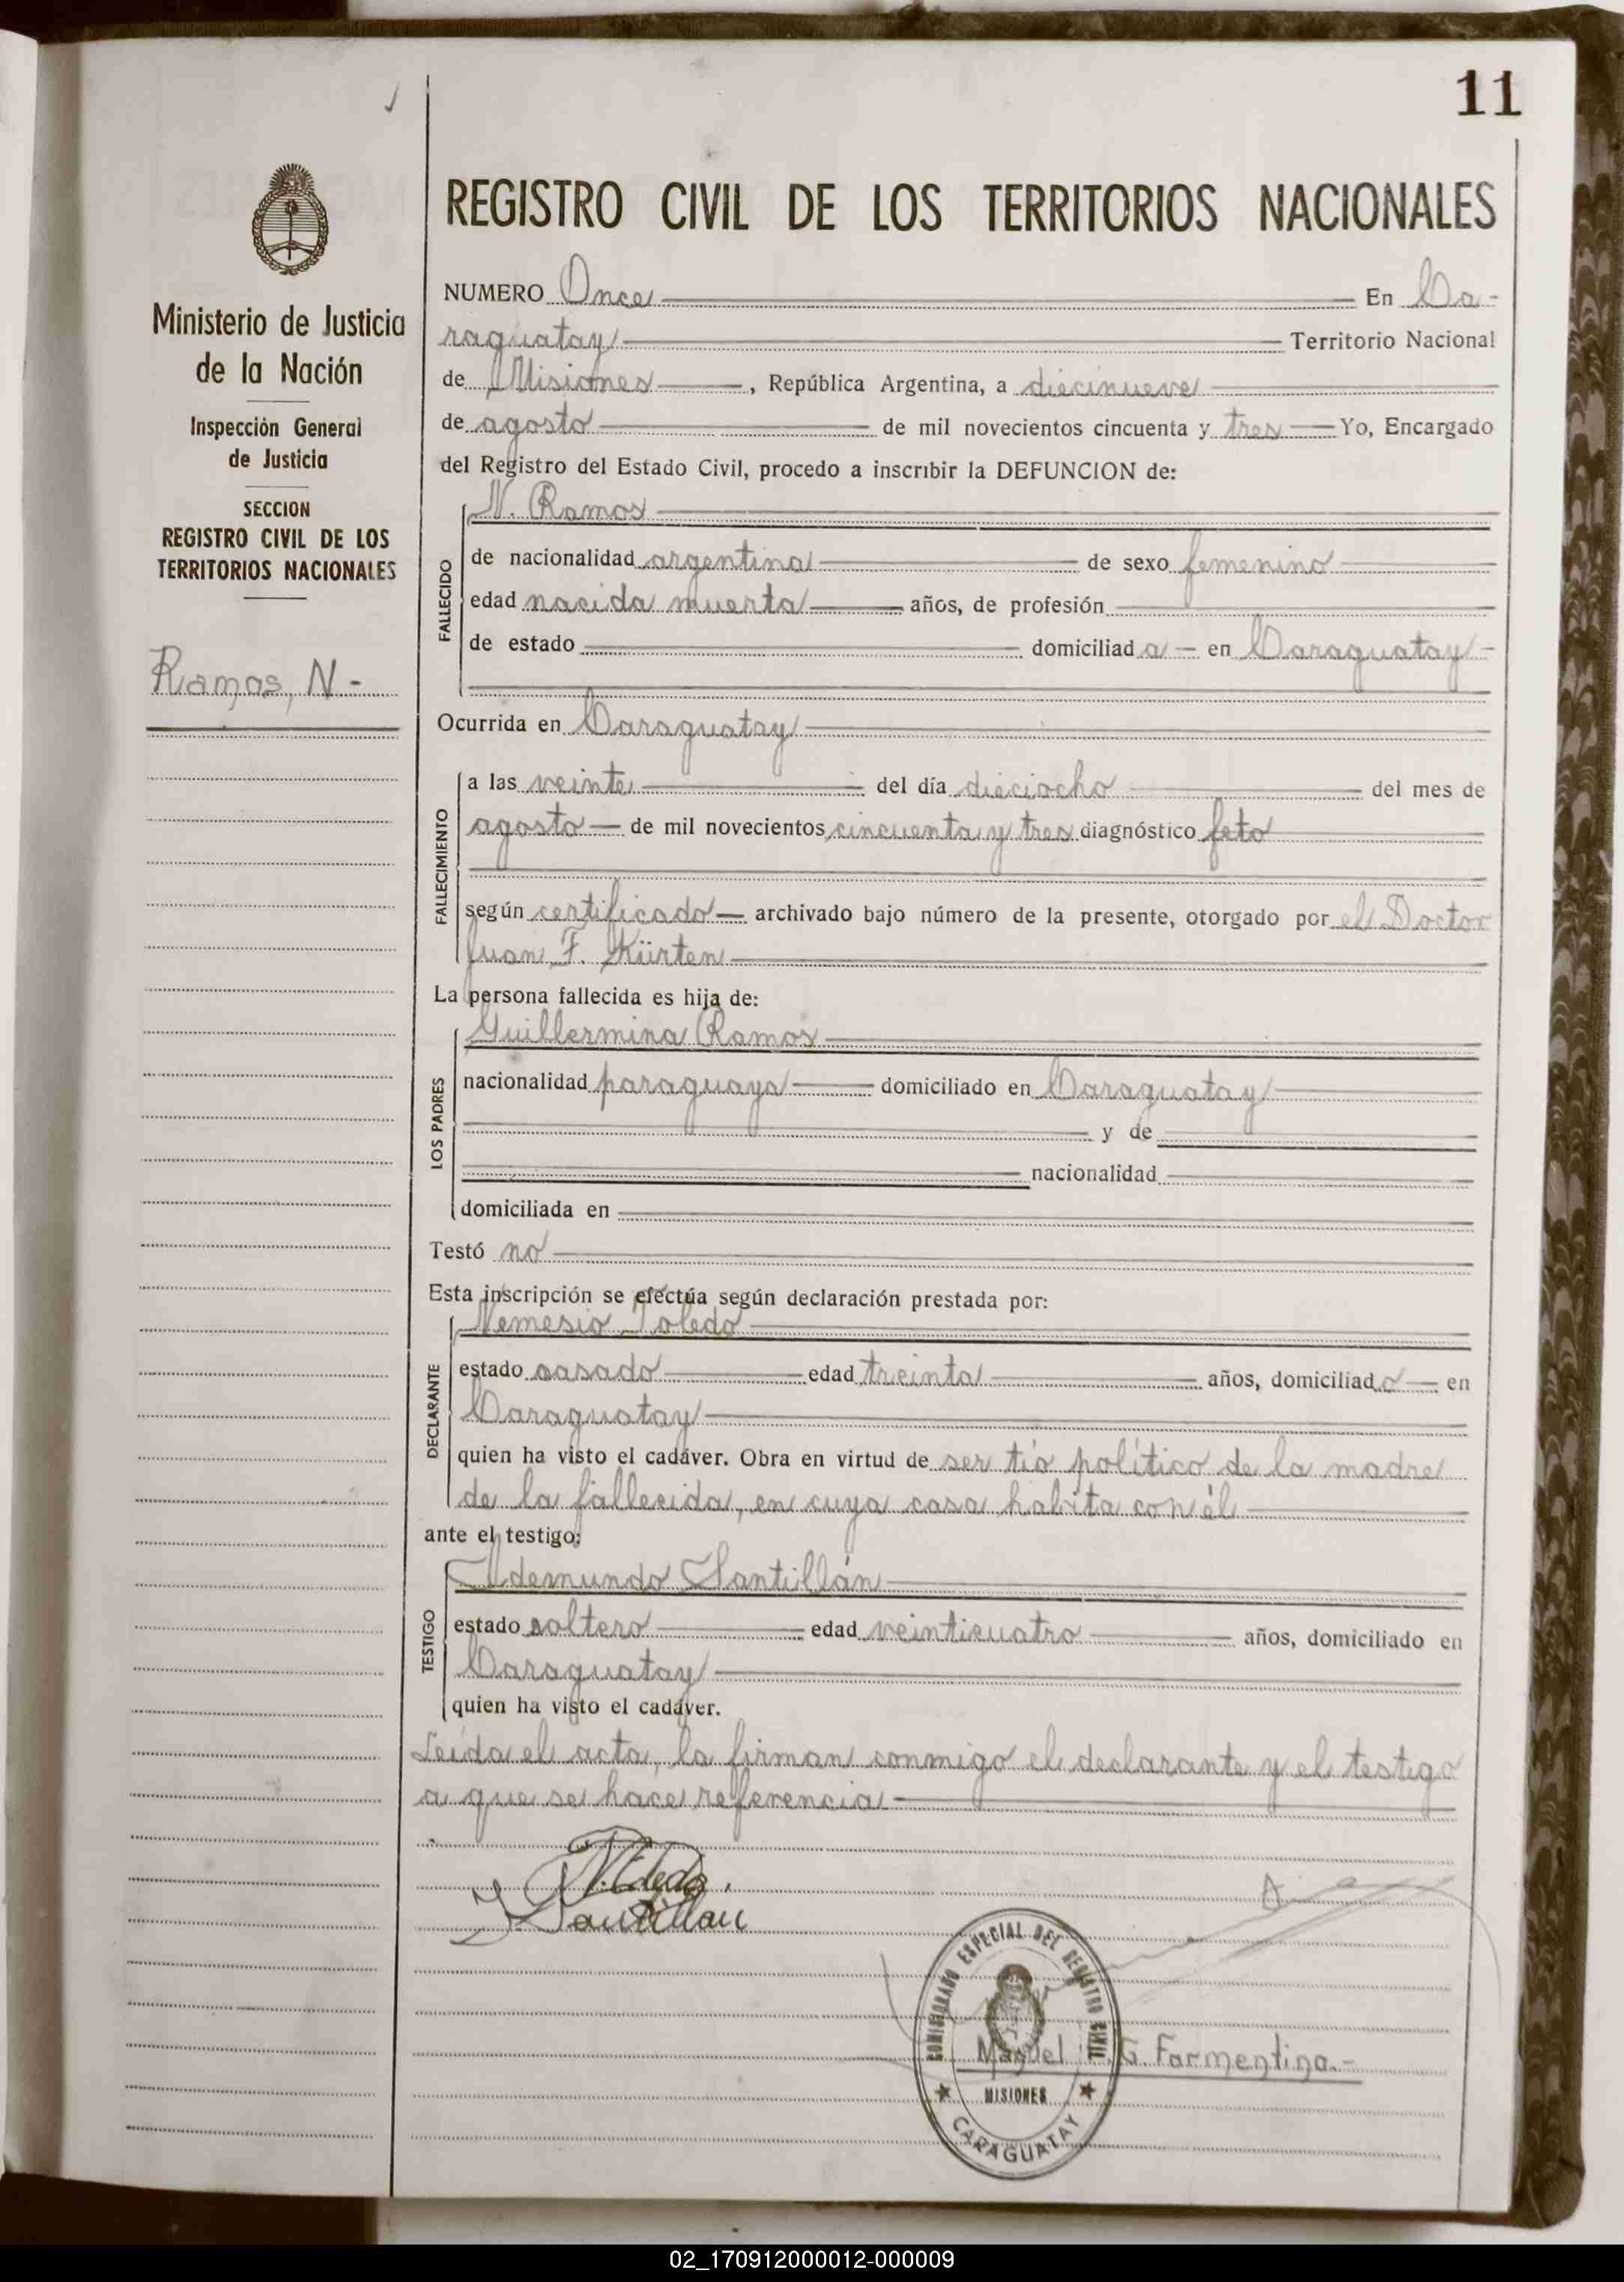 11
REGISTRO CIVIL DE LOS TERRITORIOS NACIONALES
Ministerio de Justicia
de la Nación
Inspección General
de Justicia
SECCION
REGISTRO CIVIL DE LOS
TERRITORIOS NACIONALES
Ramos, N -
NUMERO Once En Ca-
raguatay Territorio Nacional
de Misiones, República Argentina, a diecinueve
de agosto de mil novecientos cincuenta y tres Yo, Encargado
del Registro del Estado Civil, procedo a inscribir la DEFUNCION de:
FALLECIDO
N. Ramos
de nacionalidad argentina de sexo femenino
edad nacida muerta años, de profesión
de estado domiciliad a en Caraguatay
Ocurrida en Caraguatay
FALLECIMIENTO
a las veinte del día dieciocho del mes de
agosto de mil novecientos cincuenta y tres diagnóstico feto
según certificado archivado bajo número de la presente, otorgado por el Doctor
Juan F. Kürten
La persona fallecida es hija de:
LOS PADRES
Guillermina Ramos
nacionalidad paraguaya domiciliado en Caraguatay
y de
nacionalidad
domiciliada en
Testó no
Esta inscripción se efectúa según declaración prestada por:
DECLARANTE
Nemesio Toledo
estado casado edad treinta años, domiciliado en
Caraguatay
quien ha visto el cadáver. Obra en virtud de ser tío político de la madre
de la fallecida, en cuya casa habita con él
ante el testigo:
TESTIGO
Idemundo Santillán
estado soltero edad veinticuatro años, domiciliado en
Caraguatay
quien ha visto el cadáver.
Leída el acta, la firman conmigo el declarante y el testigo
a que se hace referencia
N. Toledo.
I Santillan
COMISIONADO ESPECIAL DEL REGISTRO CIVIL
Manuel G. Formentino.-
MISIONES
CARAGUATAY
02_170912000012-000009